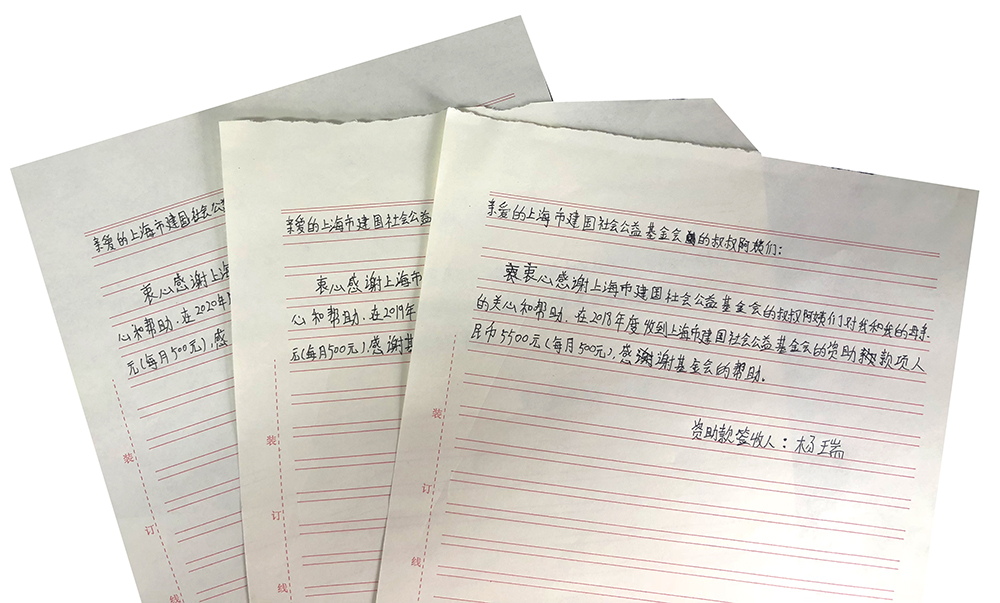 亲爱的上海市建国社会公
心和帮助.在2020年
元(每月500元),感
装
订
线
亲爱的上海市建国社会公益
衷心感谢上海市
心和帮助.在2019年
元(每月500元)感谢基
装
订
线
亲爱的上海市建国社会公益基金会的叔叔阿姨们:
衷衷心感谢上海市建国社会公益基金会的叔叔阿姨们对我和我的母亲
的关心和帮助.在2018年度收到上海市建国社会公益基金会的资助款款项人
民币5500元(每月500元),感谢谢基金会的帮助.
资助款签收人:杨瑞
装
订
线